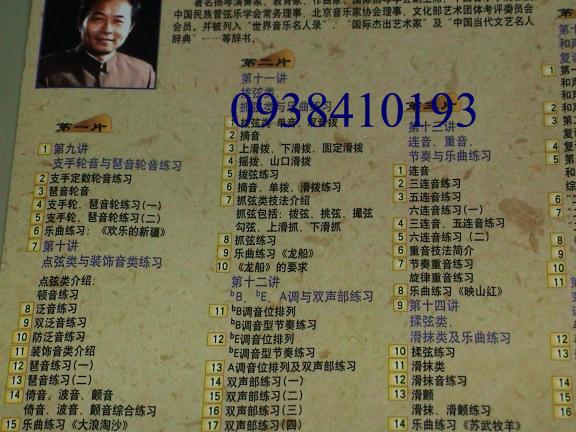 著名扬琴演奏家、教育家、作曲家、国际扬琴学会副主席、
中国民族管弦乐学会常务理事，北京音乐家协会理事，文化部艺术团体考评委员会
会员。并被列入"世界音乐名人录"、"国际杰出艺术家"及"中国当代文艺名人
辞典"……等辞书。
0938410193
第一片
1 第九讲
支手轮音与琶音轮音练习
2 支手定数轮音练习
3 琶音轮音
4 支手轮、琶音轮练习(一)
5 支手轮、琶音轮练习(二)
6 乐曲练习：《欢乐的新疆》
7 第十讲
点弦类与装饰音类练习
点弦类介绍：
顿音练习
8 泛音练习
9 双泛音练习
10 防泛音练习
11 装饰音类介绍
12 琶音练习(一)
13 琶音练习(二)
14 倚音，波音、颤音
倚音、波音、颤音综合练习
15 乐曲练习《大浪淘沙》
第二片
第十一讲
拨弦类、
抓弦类与乐曲练习
1 拨弦类 单音、双音拨
2 摘音
3 上滑拨、下滑拨、固定滑拨
4 摇拨、山口滑拨
5 拨弦练习
6 摘音、单拨、滑拨练习
7 抓弦类技法介绍
抓弦包括：拨弦、挑弦、撮弦
勾弦、上滑抓、下滑抓
8 抓弦练习
9 乐曲练习《龙船》
10 《龙船》的要求
第十二讲
11 bB、bE、A调与双声部练习
bB调音位排列
bB调音型节奏练习
12 bE调音位排列
bE调音型节奏练习
13 A调音位排列及双声部练习
14 双声部练习(一)
15 双声部练习(二)
16 双声部练习(三)
17 双声部练习(四)
第三片
第十三讲
连音、重音、
节奏与乐曲练习
1 连音
2 三连音练习
3 五连音练习
六连音练习(一)
4 三连音、五连音练习
5 六连音练习(二)
6 重音技法简介
7 节奏重音练习
旋律重音练习
8 乐曲练习《映山红》
9 第十四讲
揉弦类、
滑抹类及乐曲练习
10 揉弦练习
11 滑抹类
12 滑抹音练习
13 滑颤
滑抹、滑颤练习
14 乐曲练习《苏武牧羊》